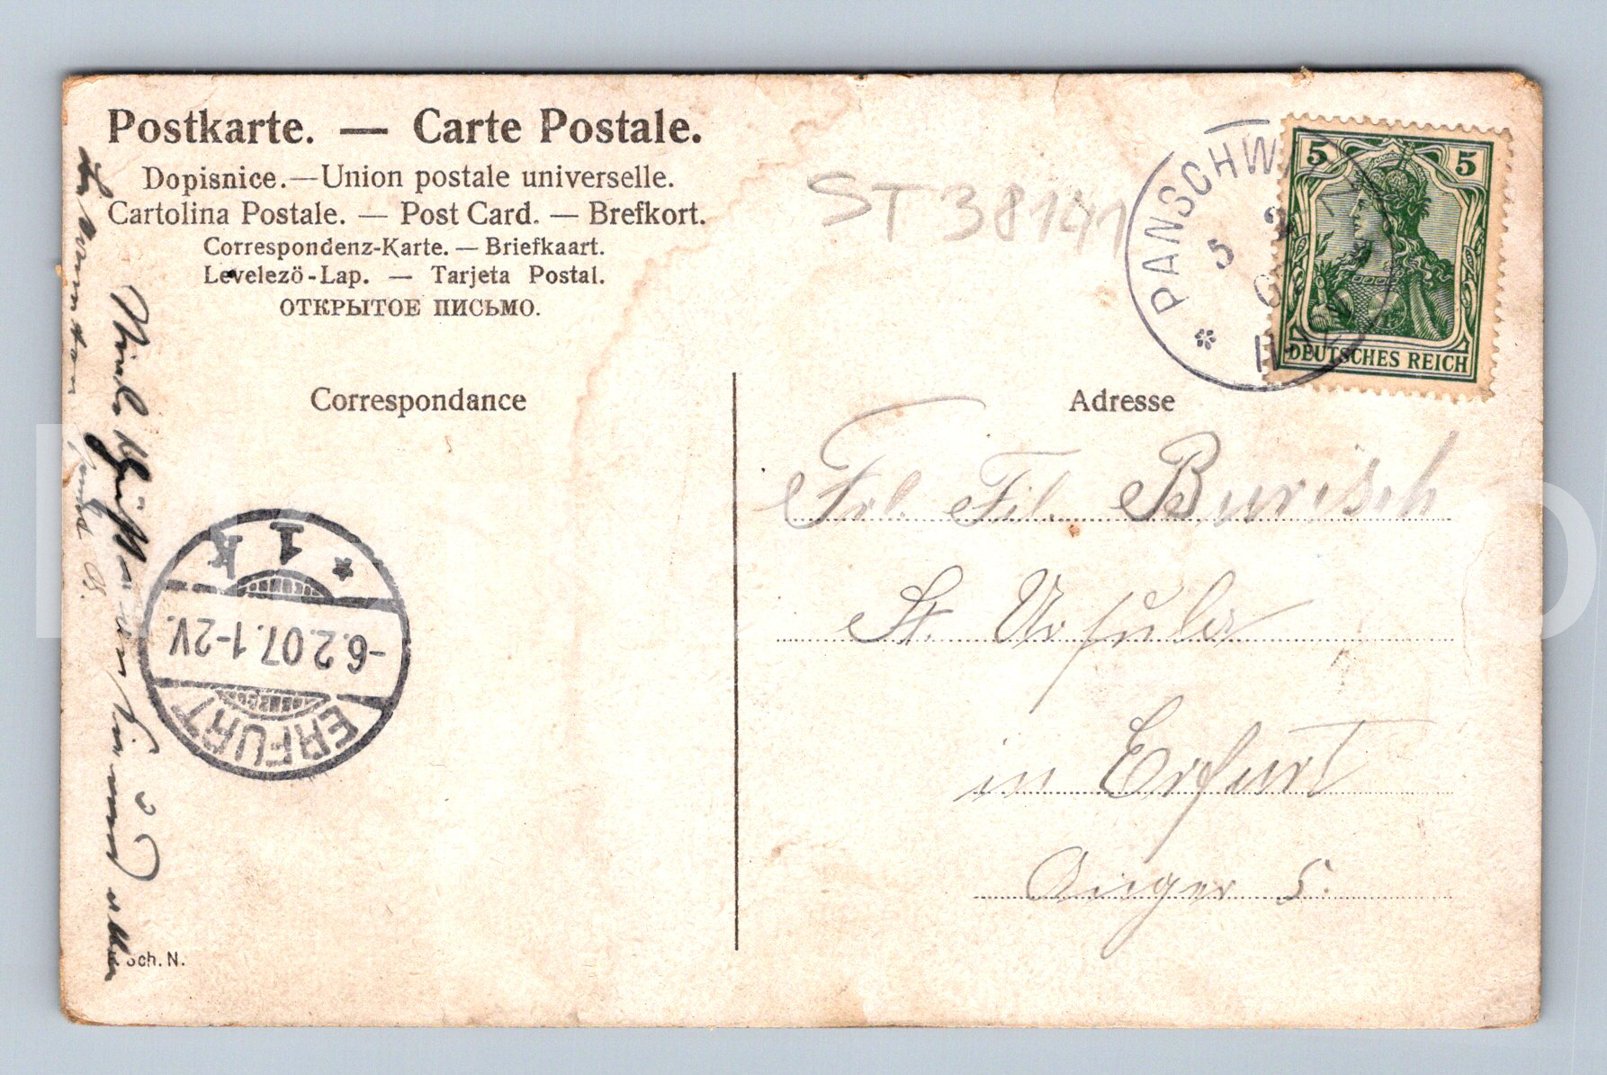 Postkarte. — Carte Postale.
Dopisnice.—Union postale universelle.
Cartolina Postale. — Post Card. — Brefkort.
Correspondenz-Karte. — Briefkaart.
Levelező-Lap. — Tarjeta Postal.
ОТКРЫТОЕ ПИСЬМО.
ST 38141
PANSCHW
5 2
5 5
DEUTSCHES REICH
Correspondance
Adresse
Frl. Fil. Burisch
St. Ursula
in Erfurt
Anger 5.
Viele Grüße
ERFURT
-6.2.07.1-2V.
* 1 k
Sch. N.